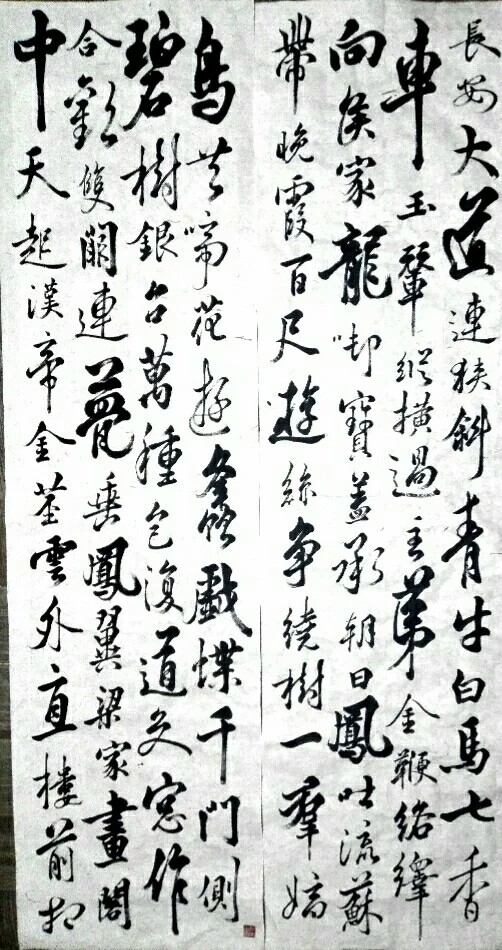 長安大道連狹斜青牛白馬七香
車玉輦縱橫過主第金鞭絡繹
向侯家龍啣寶蓋承朝日鳳吐流蘇
帶晚霞百尺遊絲争繞樹一羣嬌
鳥共啼花遊蜂戲蝶千門側
碧樹銀台萬種色復道交窓作
合歡雙闕連甍垂鳳翼梁家畫閣
中天起漢帝金莖雲外直樓前相